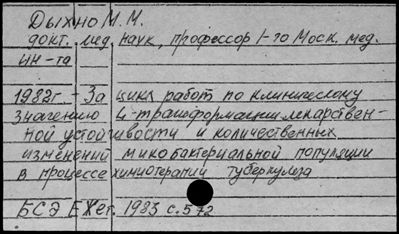 Дыхно М.М.
докт. мед. наук, профессор I-го Моск. мед.
ин-та
1982г. - За цикл работ по клиническому
значению L-трансформации лекарствен-
ной устойчивости и количественных
изменений микобактериальной популяции
в процессе химиотерапии туберкулеза
БСЭ ЕЖег. 1983 с. 572